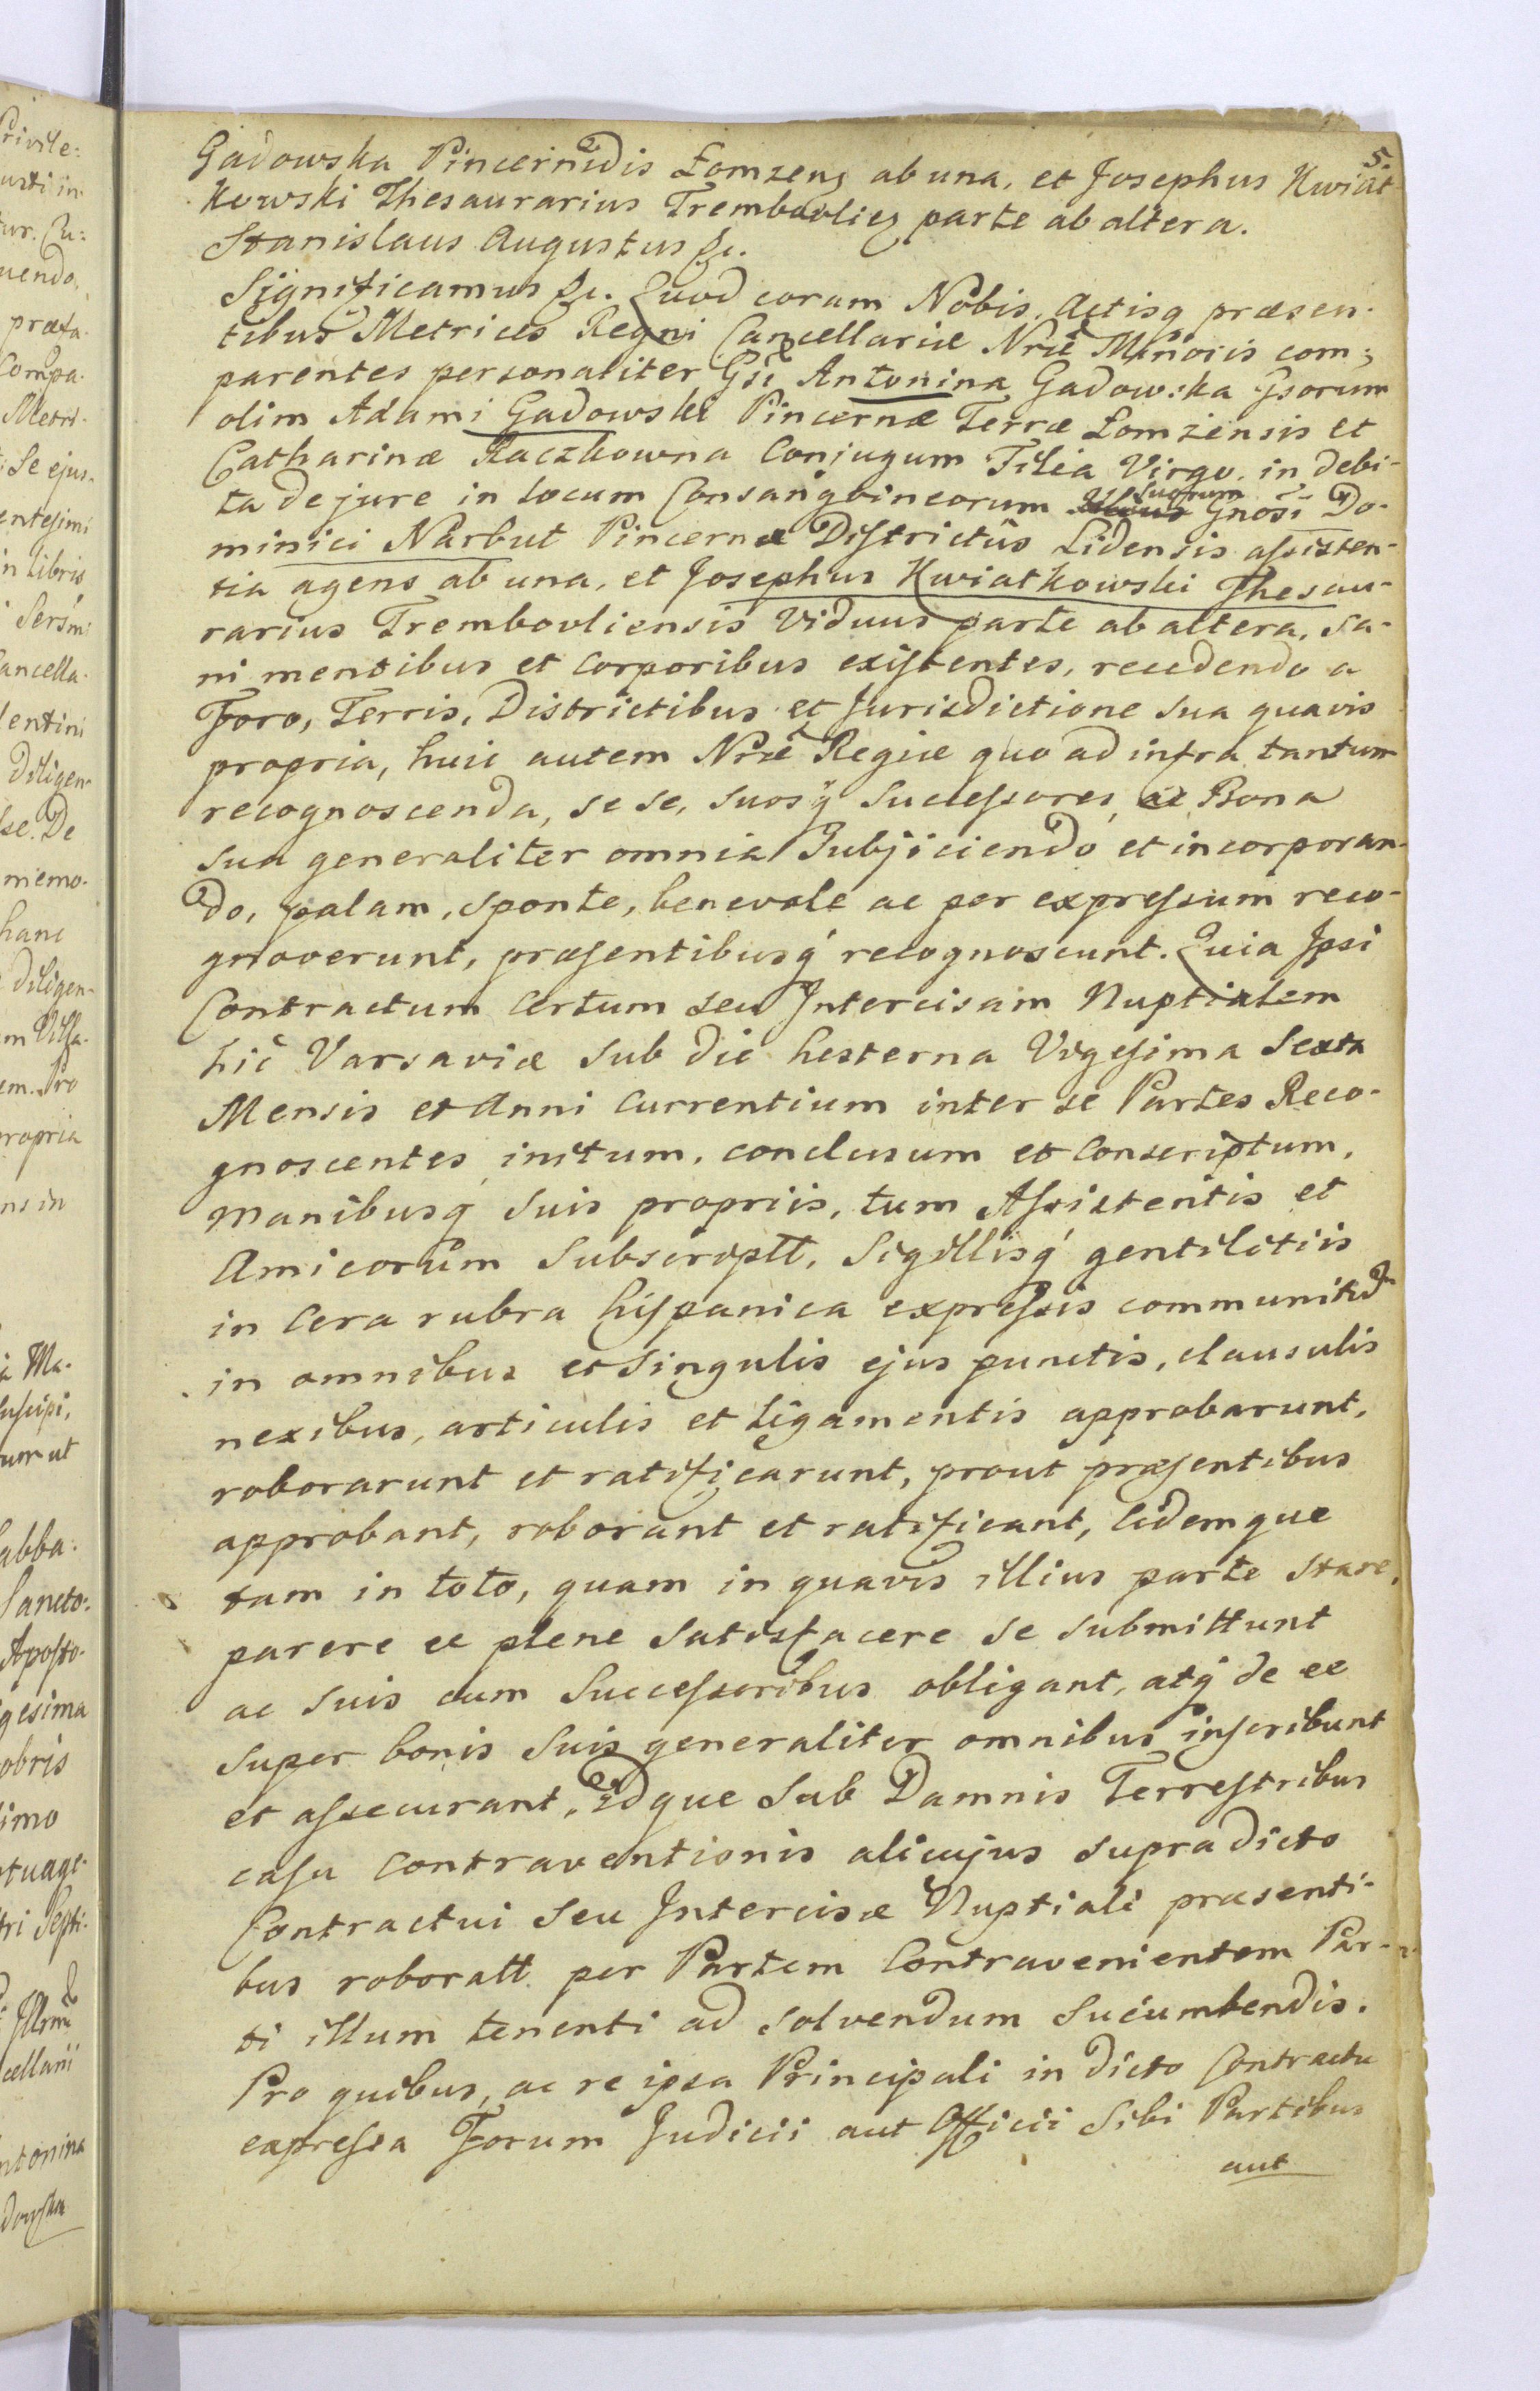 5.
Gadowska Pincernidis Łomzens ab una, et Josephus Kwiat-
kowski Thesaurarius Trembovlien parte ab altera.
Stanislaus Augustus &c.
Significamus &c. Quod coram Nobis, Actisq præsen-
tibus Metrices Regni Cancellariæ Nræ Minoris com-
parentes personaliter Gsi Antonina Gadowska Gsorum
olim Adami Gadowski Pincernæ Terræ Łomzensis et
Catharinæ Raczkowna Conjugum Filia Virgo, in debi-
ta de jure in locum Consangvineorum suorum Gnosi Do-
minici Narbut Pincernæ Districtûs Lidensis assisten-
tia agens ab una, et Josephus Kwiatkowski Thesau-
rarius Trembovliensis Viduus parte ab altera, sa-
ni mentibus et corporibus existentes, recedendo a
Foro, Terris, Districtibus et Jurisdictione sua quavis
propria, huic autem Nræ Regiæ quo ad infra tantum
recognoscenda, se se, suosq Successores, ac Bona
sua generaliter omnia Subjiciendo et incorporan-
do, palam, sponte, benevole ac per expressum reco-
gnoverunt, præsentibusq recognoscunt. Quia Ipsi
Contractum certum seu Intercisam Nuptialem
hîc Varsaviæ sub die hesterna Vigesima Sexta
Mensis et Anni currentium inter se Partes Reco-
gnoscentes initum, conclusum et conscriptum,
manibusq suis propriis, tum Assistentis et
Amicorum Subscriptt, Sigillisq gentilitiis
in cera rubra hispanica expressis communitū
in omnibus et singulis ejus punctis, clausulis
nexibus, articulis et ligamentis approbarunt,
roborarunt et ratificarunt, prout præsentibus
approbant, roborant et ratificant, eidemque
tam in toto, quam in quavis illius parte stare,
parere ee plene satisfacere se submittunt
ac suis cum Successoribus obligant, atq de ee
super bonis suis generaliter omnibus inscribunt
et assecurant, Idque sub Damnis Terrestribus
casu contraventionis alicujus supradicto
Contractui seu Intercisæ Nuptiali præsenti-
bus roboratt per Partem Contravenientem Par-
ti illum tenenti ad solvendum sucumbendis.
Pro quibus, ac re ipsa Principali in dicto Contractu
expressa Forum Judicii aut Officii sibi Partibus
aut